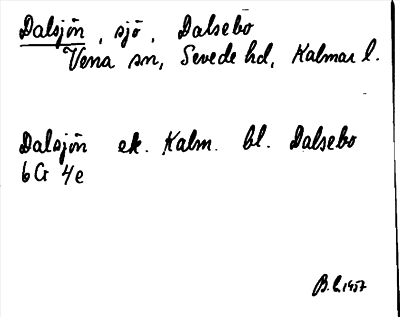 Dalsjön, sjö, Dalsebo
Vena sn, Sevede hd, Kalmar l.
Dalsjön ek. Kalm. bl. Dalsebo
6G 4e